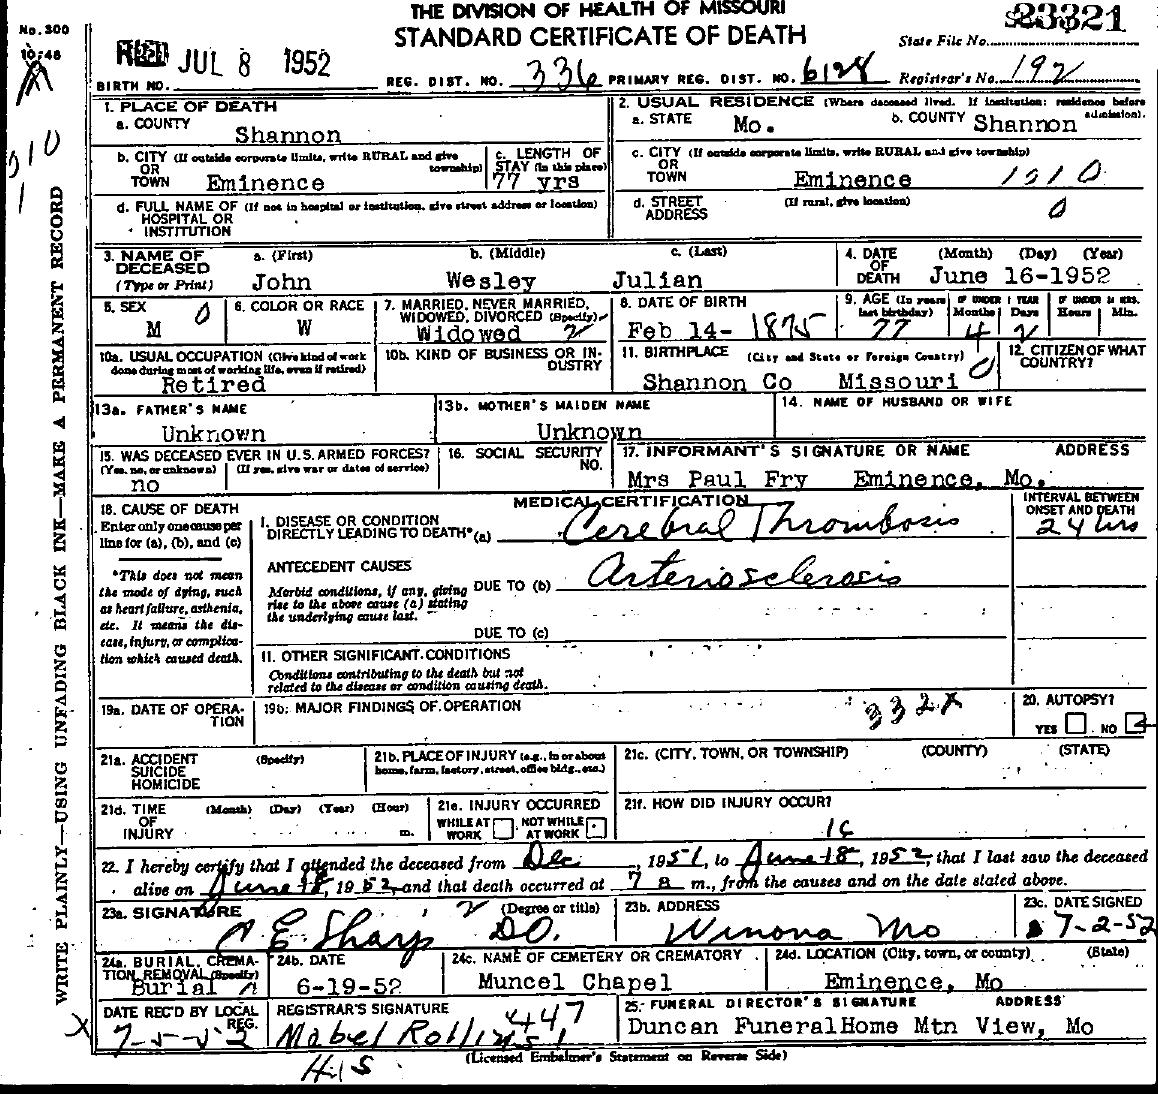 THE DIVISION OF HEALTH OF MISSOURI
STANDARD CERTIFICATE OF DEATH
No. 300
10-48
JUL 8 1952
State File No. 23321
BIRTH NO. REG. DIST. NO. 336 PRIMARY REG. DIST. NO. 6128 Registrar's No. 192
1. PLACE OF DEATH
a. COUNTY
Shannon
2. USUAL RESIDENCE (Where deceased lived. If institution: residence before admission).
a. STATE Mo. b. COUNTY Shannon
b. CITY (If outside corporate limits, write RURAL and give township)
OR
TOWN Eminence
c. LENGTH OF
STAY (in this place)
77 yrs
c. CITY (If outside corporate limits, write RURAL and give township)
OR
TOWN Eminence 1010
d. FULL NAME OF (If not in hospital or institution, give street address or location)
HOSPITAL OR
INSTITUTION
d. STREET (If rural, give location)
ADDRESS 0
3. NAME OF
DECEASED
(Type or Print)
a. (First) b. (Middle) c. (Last)
John Wesley Julian
4. DATE (Month) (Day) (Year)
OF
DEATH June 16-1952
5. SEX 0
M
6. COLOR OR RACE
W
7. MARRIED, NEVER MARRIED,
WIDOWED, DIVORCED (Specify)
Widowed 2
8. DATE OF BIRTH
Feb 14- 1875
9. AGE (In years last birthday) IF UNDER 1 YEAR IF UNDER 24 HRS.
Months Days Hours Min.
77 4 2
10a. USUAL OCCUPATION (Give kind of work
done during most of working life, even if retired)
Retired
10b. KIND OF BUSINESS OR IN-
DUSTRY
11. BIRTHPLACE (City and State or Foreign Country)
Shannon Co Missouri 0
12. CITIZEN OF WHAT
COUNTRY?
13a. FATHER'S NAME
Unknown
13b. MOTHER'S MAIDEN NAME
Unknown
14. NAME OF HUSBAND OR WIFE
15. WAS DECEASED EVER IN U.S. ARMED FORCES?
(Yes, no, or unknown) (If yes, give war or dates of service)
no
16. SOCIAL SECURITY
NO.
17. INFORMANT'S SIGNATURE OR NAME ADDRESS
Mrs Paul Fry Eminence, Mo.
18. CAUSE OF DEATH
Enter only one cause per
line for (a), (b), and (c)
*This does not mean
the mode of dying, such
as heart failure, asthenia,
etc. It means the dis-
ease, injury, or complica-
tion which caused death.
MEDICAL CERTIFICATION
I. DISEASE OR CONDITION
DIRECTLY LEADING TO DEATH*(a) Cerebral Thrombosis
ANTECEDENT CAUSES
Morbid conditions, if any, giving
rise to the above cause (a) stating
the underlying cause last.
DUE TO (b) Arteriosclerosis
DUE TO (c)
II. OTHER SIGNIFICANT CONDITIONS
Conditions contributing to the death but not
related to the disease or condition causing death.
INTERVAL BETWEEN
ONSET AND DEATH
24 hrs
19a. DATE OF OPERA-
TION
19b. MAJOR FINDINGS OF OPERATION
332X
20. AUTOPSY?
YES NO
21a. ACCIDENT (Specify)
SUICIDE
HOMICIDE
21b. PLACE OF INJURY (e.g., in or about
home, farm, factory, street, office bldg., etc.)
21c. (CITY, TOWN, OR TOWNSHIP) (COUNTY) (STATE)
21d. TIME (Month) (Day) (Year) (Hour)
OF
INJURY m.
21e. INJURY OCCURRED
WHILE AT NOT WHILE
WORK AT WORK
21f. HOW DID INJURY OCCUR?
16
22. I hereby certify that I attended the deceased from Dec, 1951, to June 18, 1952, that I last saw the deceased
alive on June 18, 1952, and that death occurred at 7 a m., from the causes and on the date stated above.
23a. SIGNATURE (Degree or title)
E Sharp DO.
23b. ADDRESS
Winona Mo
23c. DATE SIGNED
7-2-52
24a. BURIAL, CREMA-
TION, REMOVAL (Specify)
Burial
24b. DATE
6-19-52
24c. NAME OF CEMETERY OR CREMATORY
Muncel Chapel
24d. LOCATION (City, town, or county) (State)
Eminence, Mo
DATE REC'D BY LOCAL
REG.
7-5-52
REGISTRAR'S SIGNATURE 447
Mabel Rollins
25. FUNERAL DIRECTOR'S SIGNATURE ADDRESS
Duncan FuneralHome Mtn View, Mo
(Licensed Embalmer's Statement on Reverse Side)
WRITE PLAINLY—USING UNFADING BLACK INK—MAKE A PERMANENT RECORD